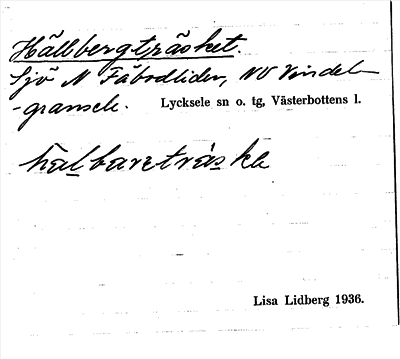 Hällbergträsket.
Sjö N Fäbodliden, NV Vindel-
-gransele. Lycksele sn o. tg, Västerbottens l.
halbaretràska
Lisa Lidberg 1936.